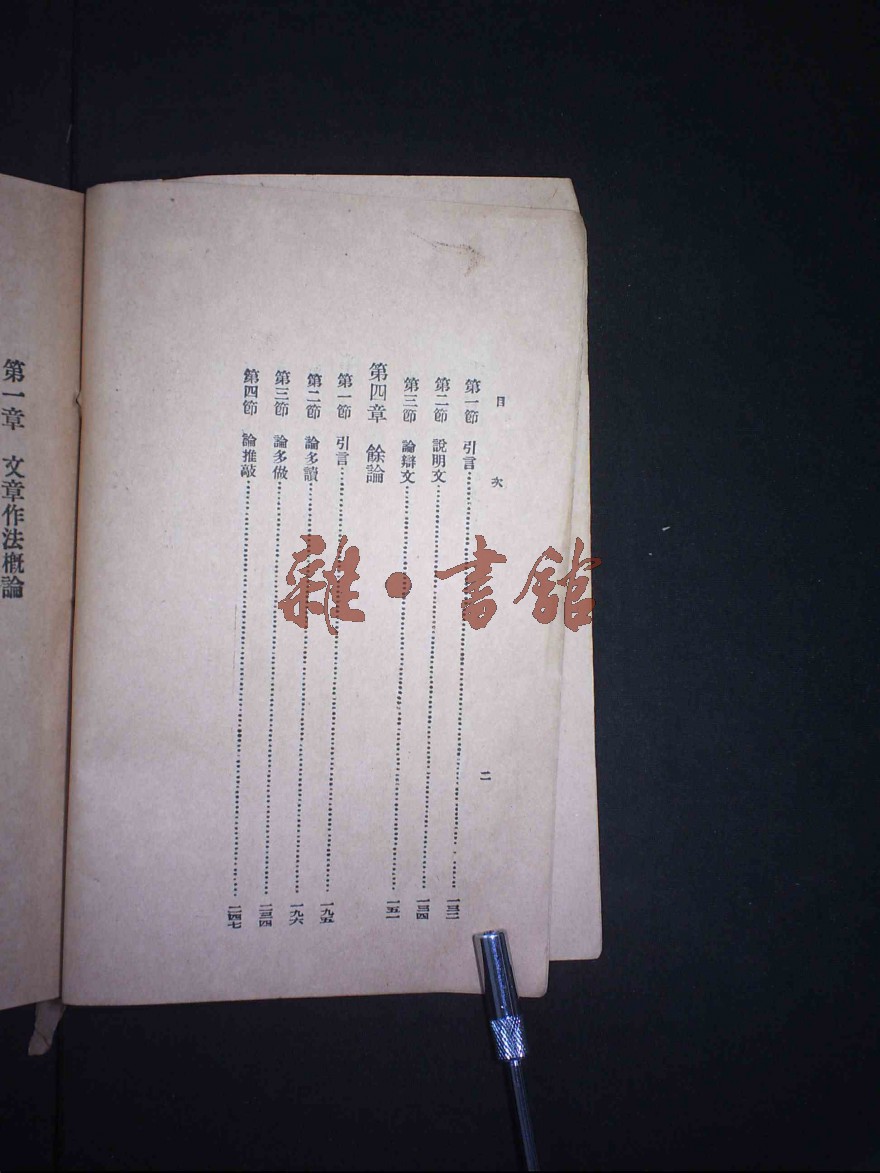 目 次 二
第一節 引言 一三二
第二節 說明文 一三四
第三節 論辯文 一五一
第四章 餘論
第一節 引言 一九五
第二節 論多讀 一九六
第三節 論多做 二三四
第四節 論推敲 二四七
第一章 文章作法概論
雜·書館